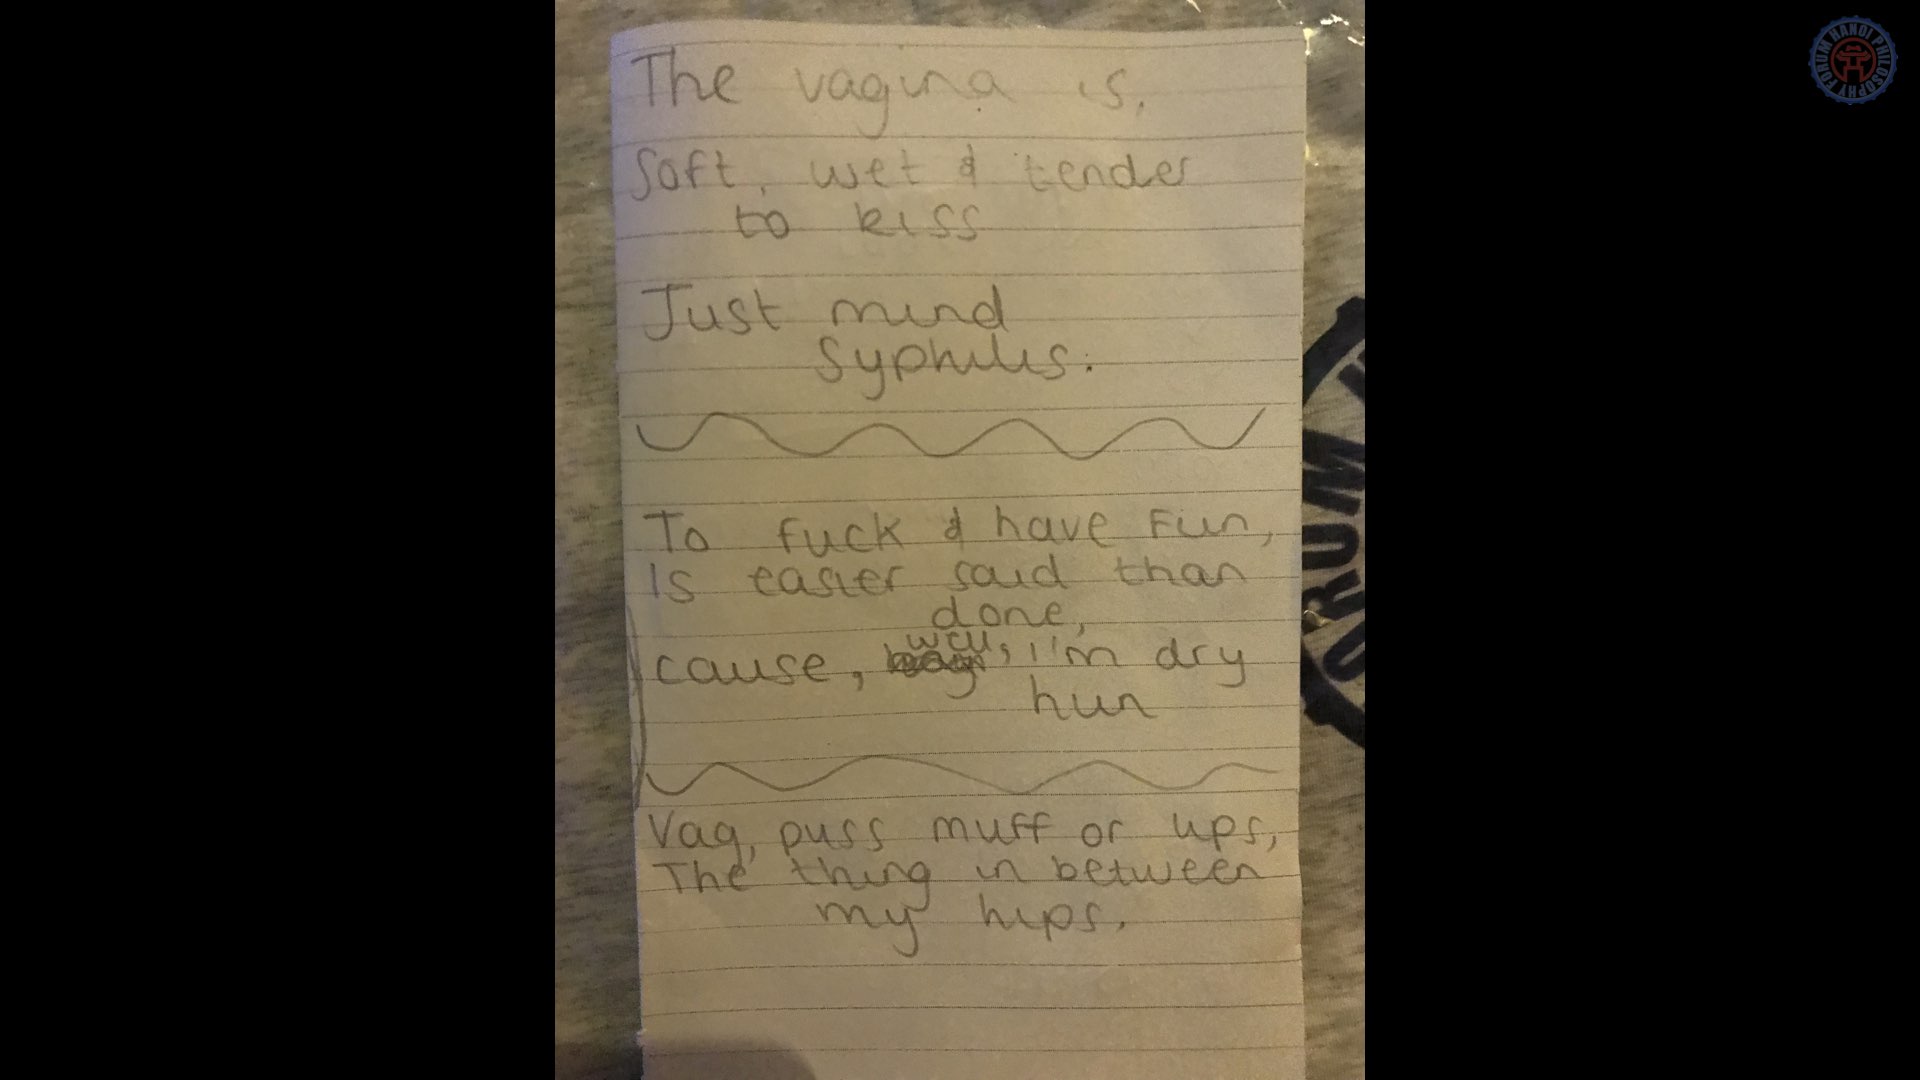 The vagina is,
Soft, wet & tender
to kiss
Just mind
Syphilis.
To fuck & have Fun,
Is easier said than
done,
cause, well, i'm dry
hun
Vag, puss muff or lips,
The thing in between
my hips.
FORUM HANOI PHILOSOPHY
ORUM